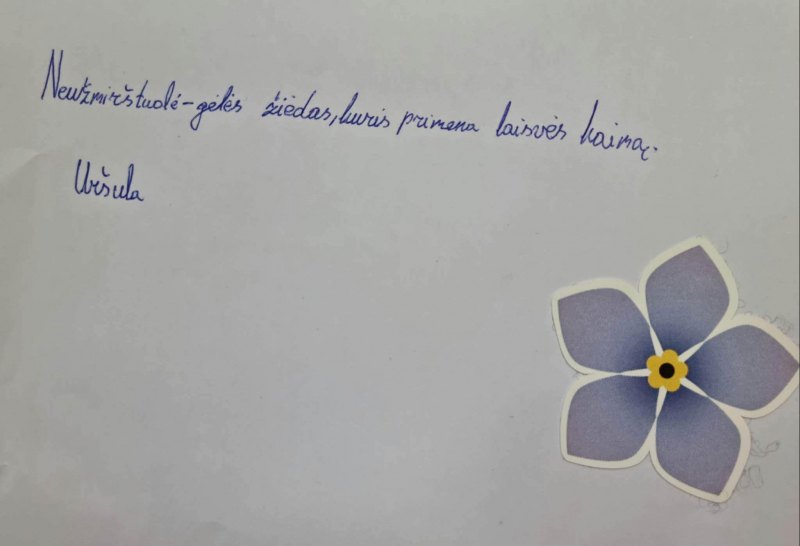 Neužmirštuolė-gėlės žiedas, kuris primena laisvės kainą.
Uršula